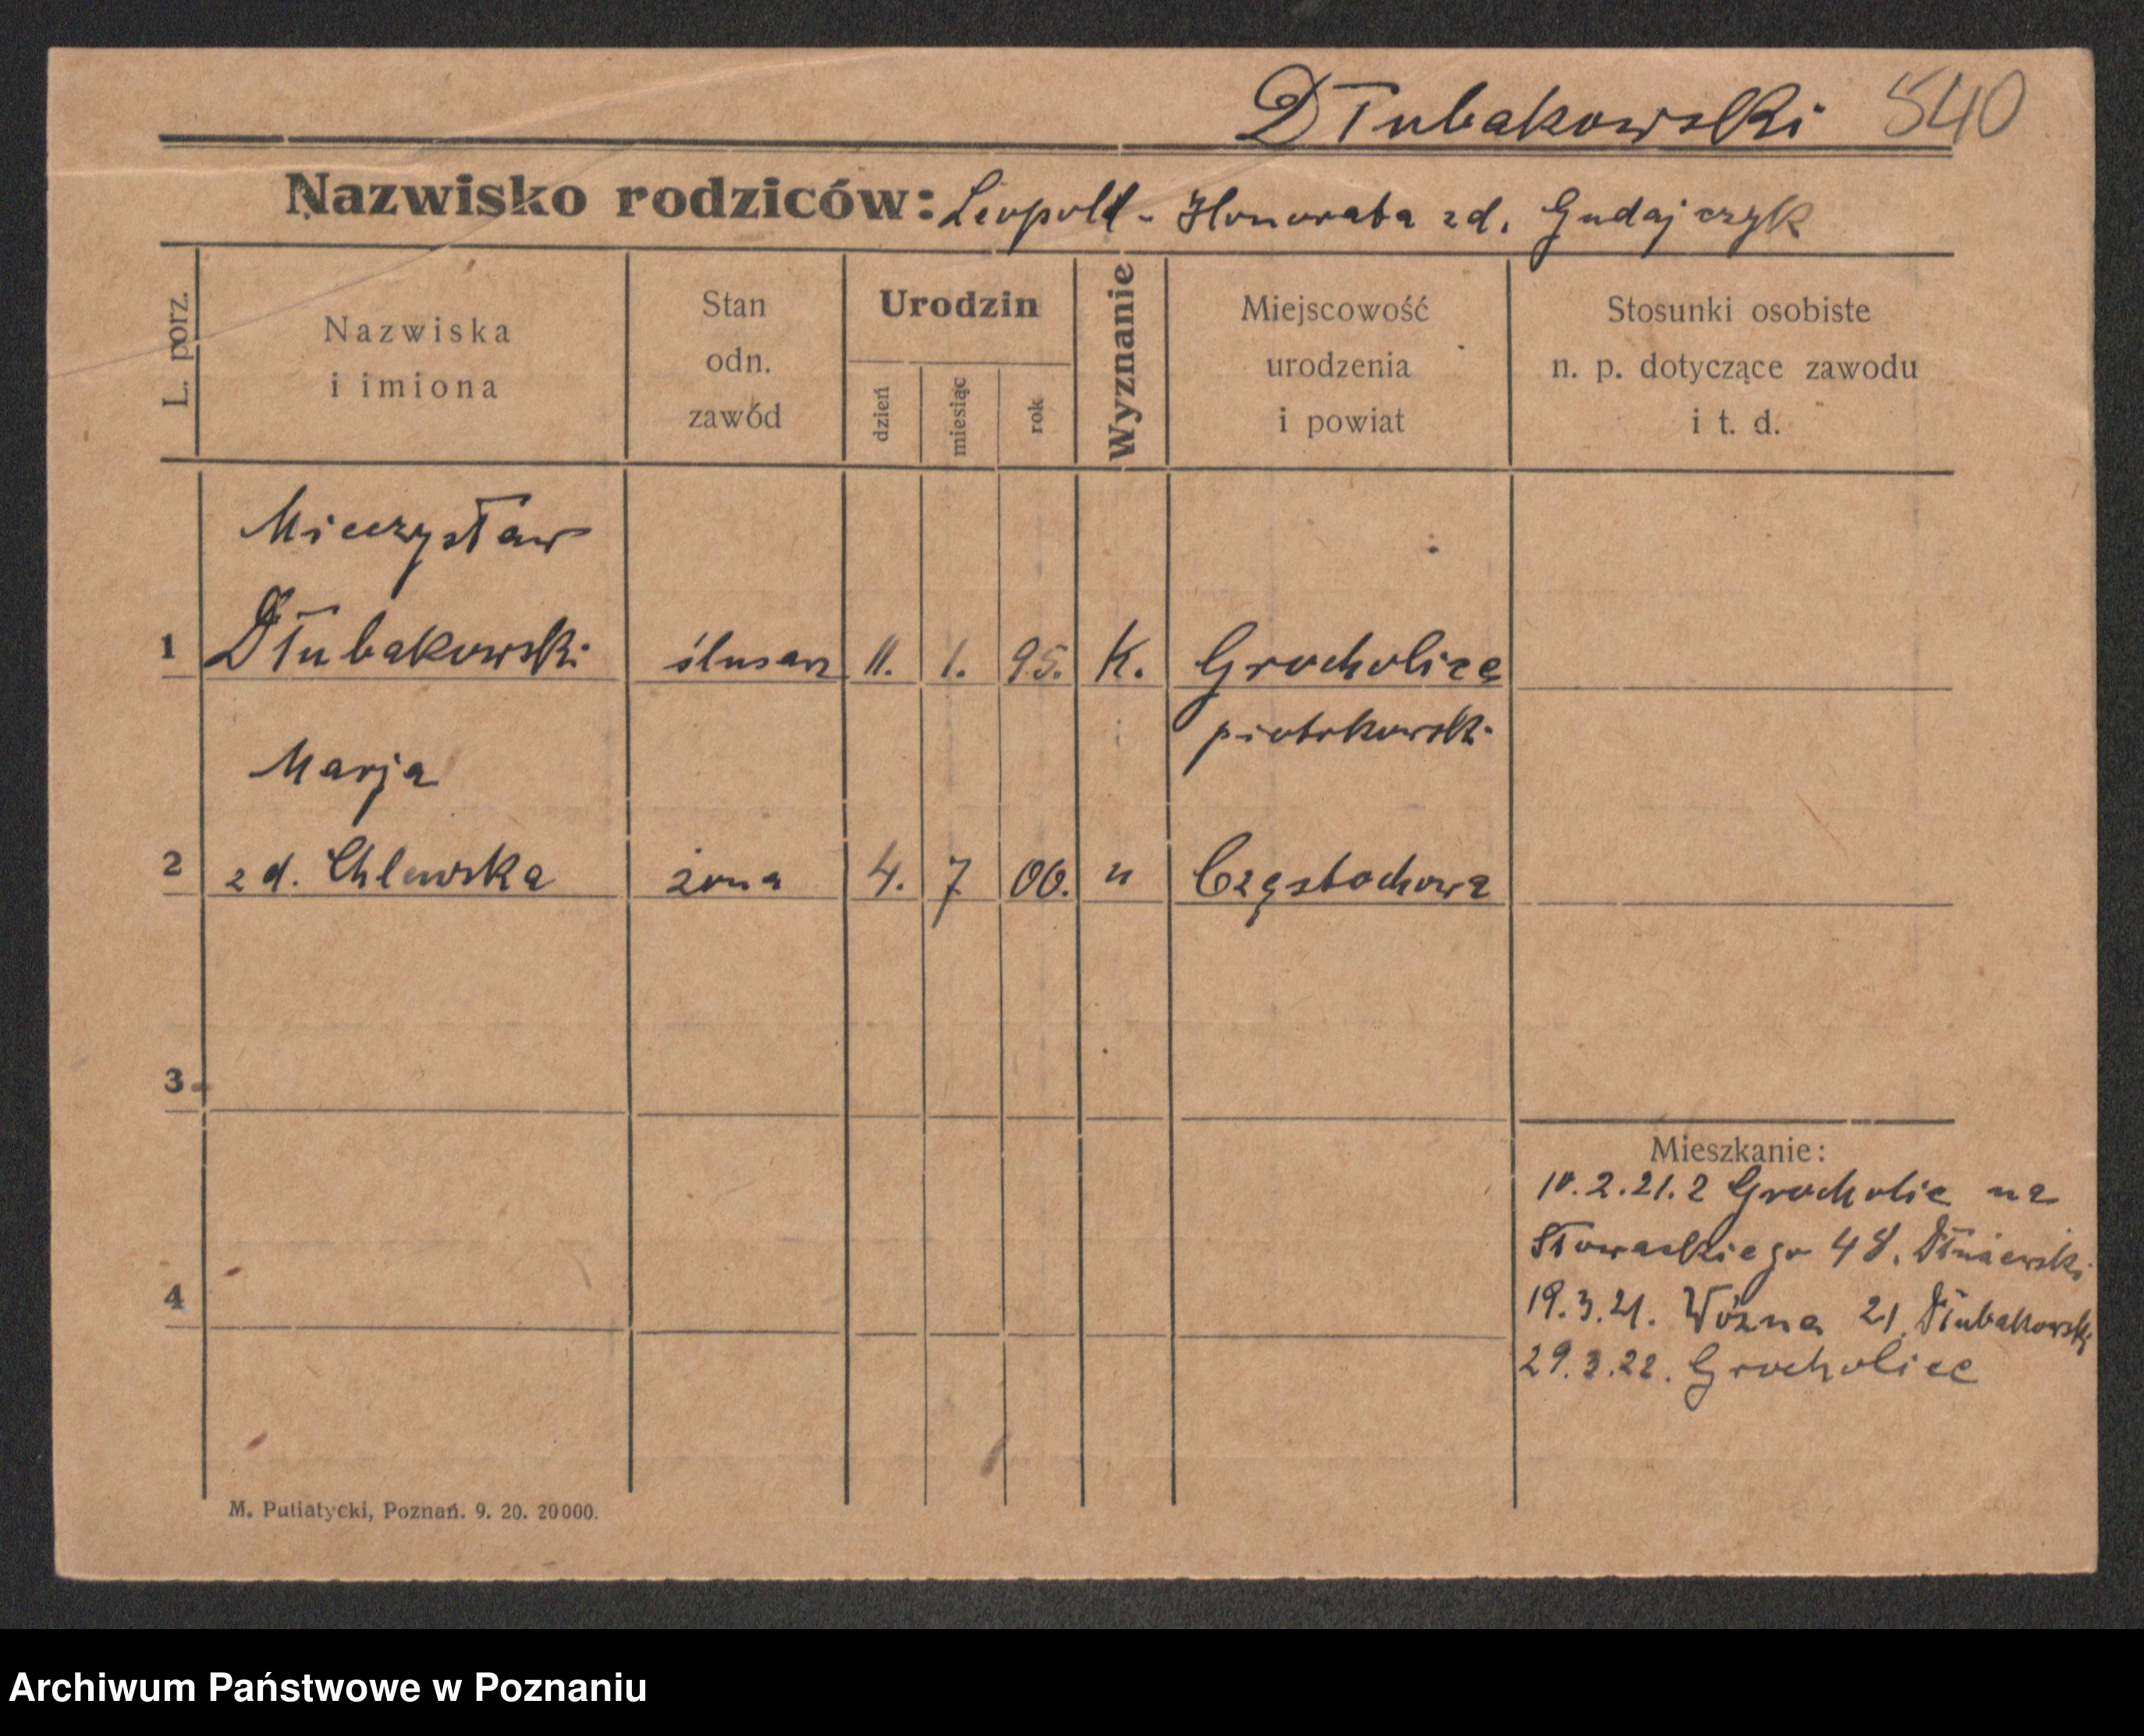 Dłubakowski 540
Nazwisko rodziców: Leopold - Honorata zd. Gudajczyk
L. porz.
Nazwiska
i imiona
Stan
odn.
zawód
Urodzin
dzień
miesiąc
rok
Wyznanie
Miejscowość
urodzenia
i powiat
Stosunki osobiste
n. p. dotyczące zawodu
i t. d.
Mieczysław
1 Dłubakowski ślusarz 11. 1. 95. K. Grocholice
piotrkowski
Marja
2 zd. Chlewska żona 4. 7 00. " Częstochowa
3
Mieszkanie:
10.2.21. z Grocholic na
Słowackiego 48.
4
19.3.21. Woźna 21 Dłubakowski
29.3.22. Grocholice
M. Putiatycki, Poznań. 9. 20. 20000.
Archiwum Państwowe w Poznaniu